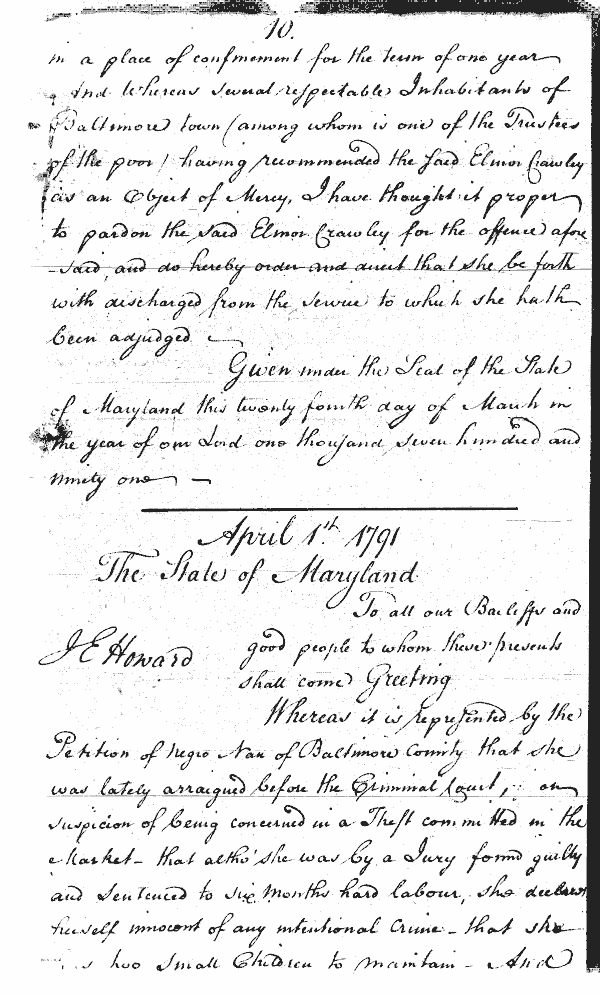 10.
in a place of confinement for the term of one year
And Whereas several respectable Inhabitants of
Baltimore town (among whom is one of the Trustees
of the poor) having recommended the said Elmor Crawley
as an Object of Mercy, I have thought it proper
to pardon the said Elmor Crawley for the offence afore
-said, and do hereby order and direct that she be forth
with discharged from the service to which she hath
been adjudged
Given under the Seal of the State
of Maryland this twenty fourth day of March in
the year of our Lord one thousand seven hundred and
ninety one —
April 1st 1791
The State of Maryland
To all our Bailiffs and
J E Howard good people to whom these presents
shall come Greeting
Whereas it is represented by the
Petition of negro Nan of Baltimore County that she
was lately arraigned before the Criminal Court, on
suspicion of being concerned in a Theft committed in the
Market - that altho' she was by a Jury found guilty
and Sentenced to six Months hard labour, she declares
herself innocent of any intentional Crime - that she
two Small Children to maintain - And